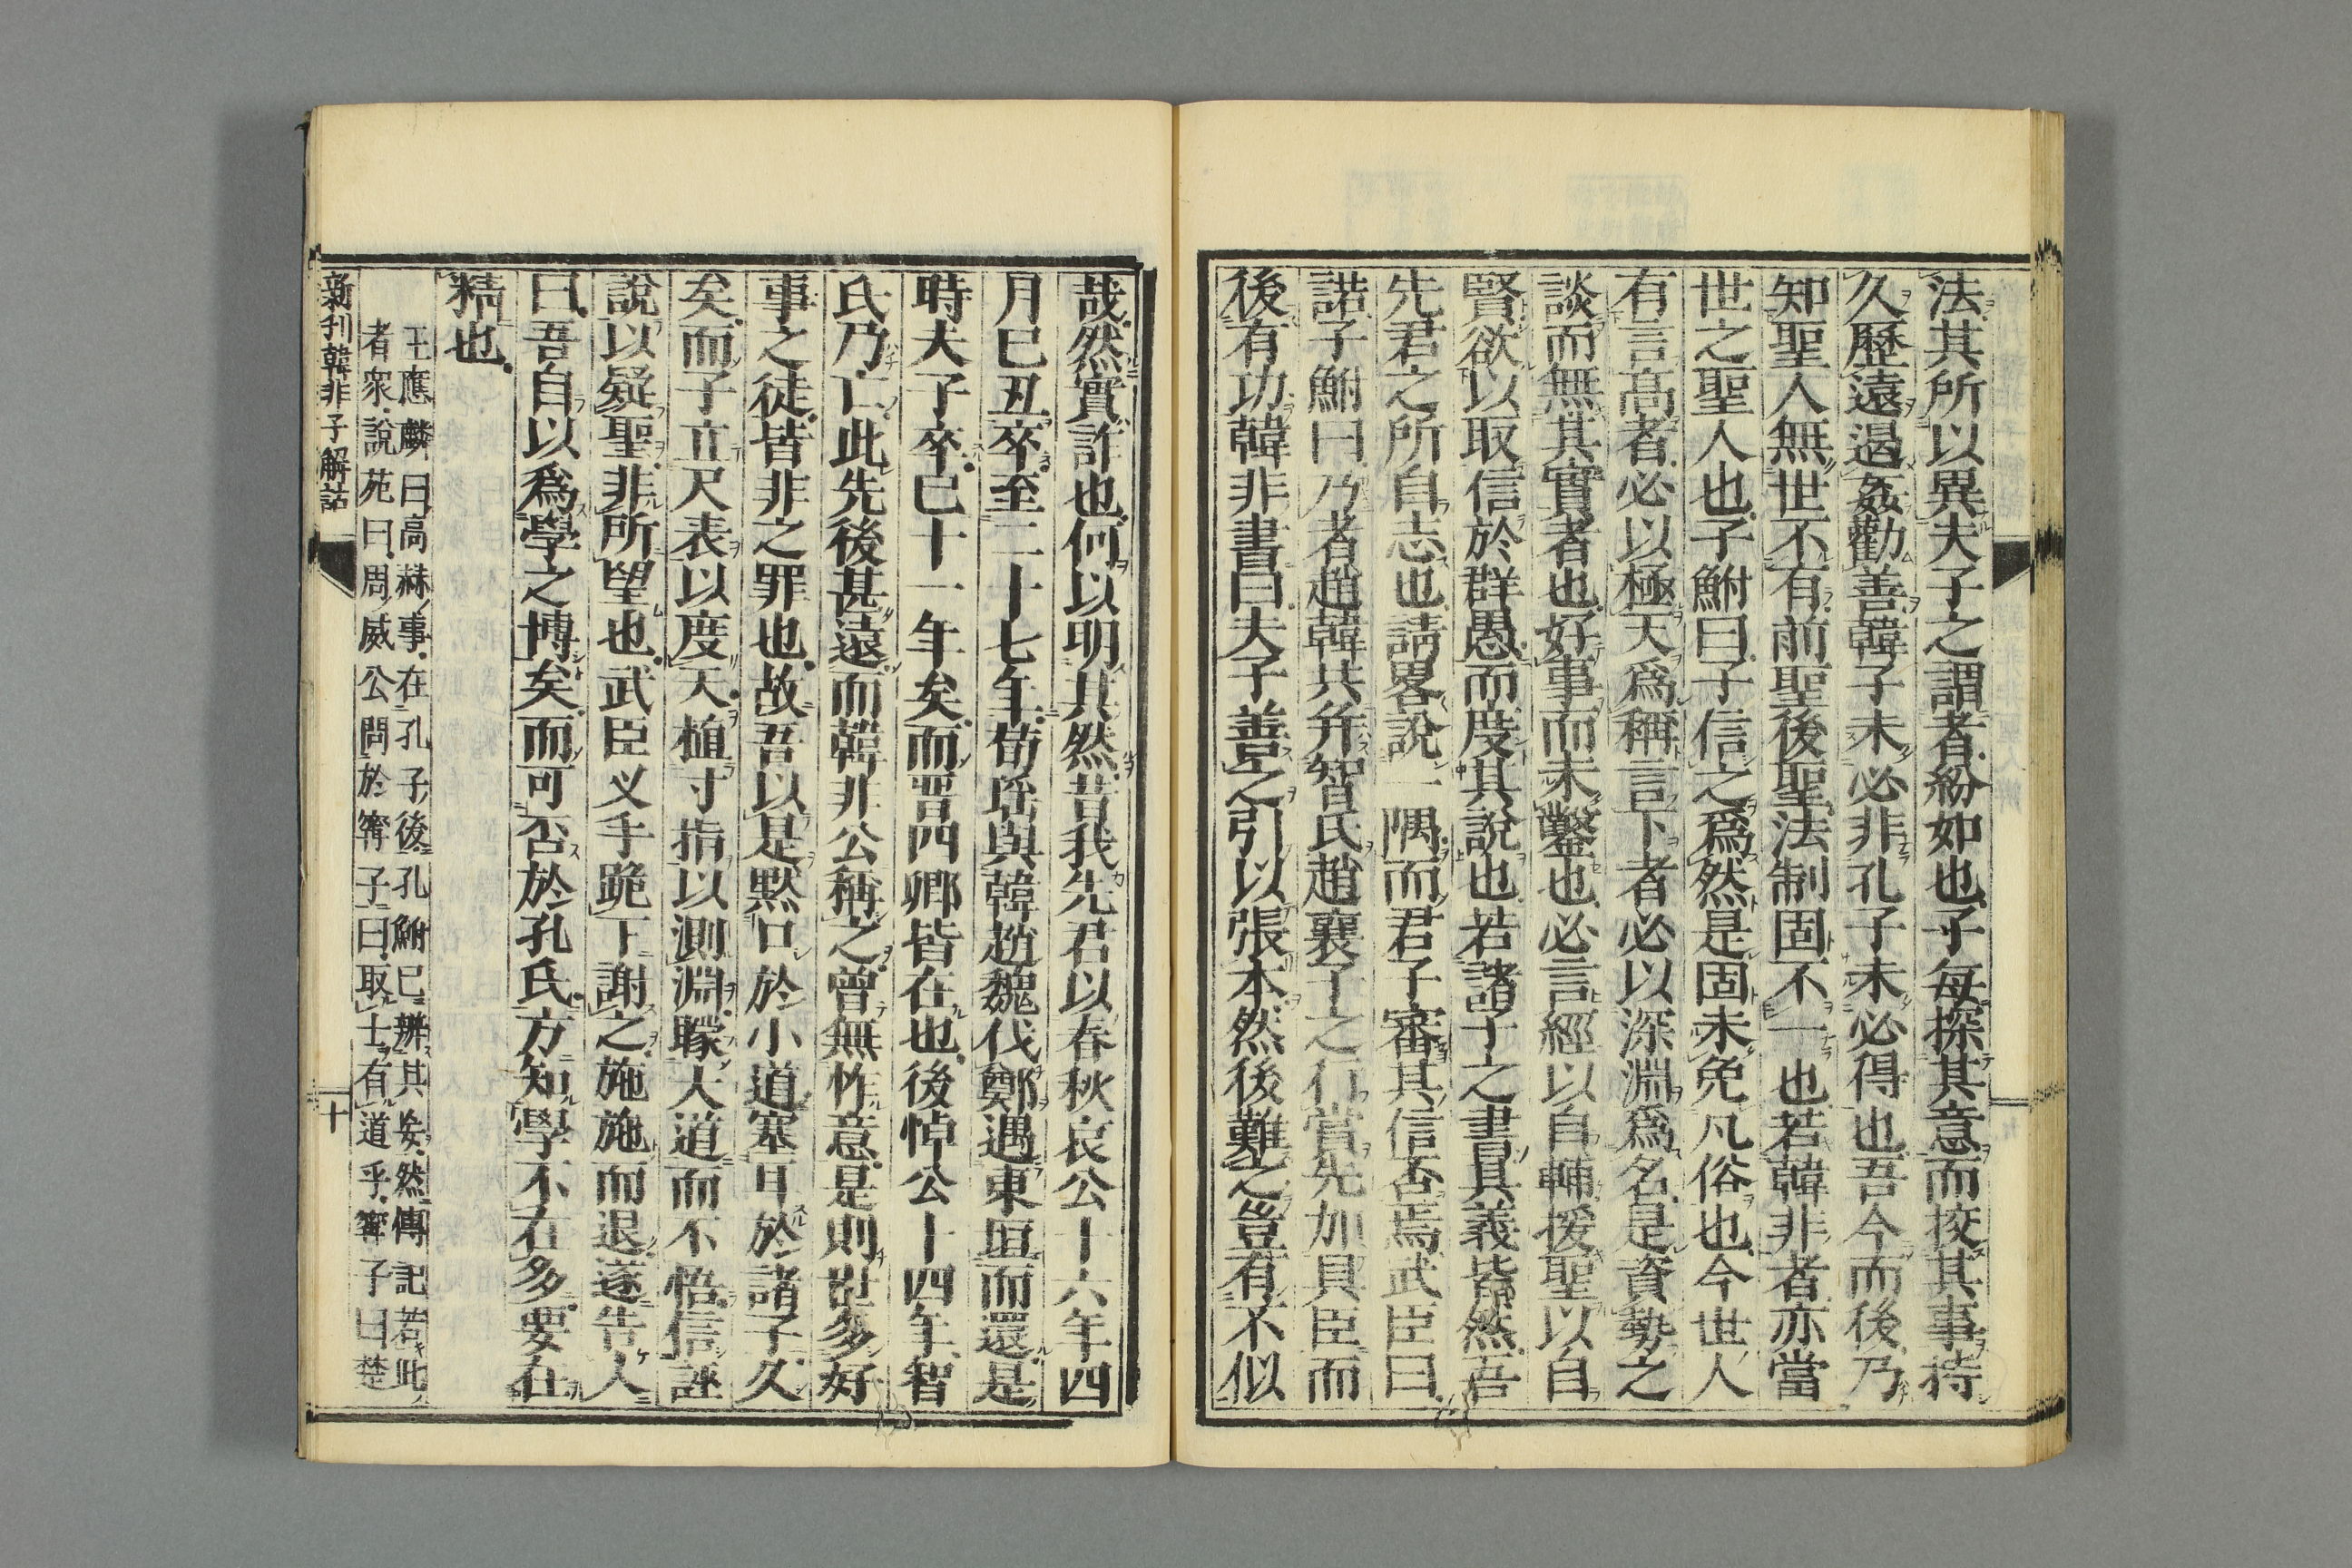 法其所以異夫子之謂者紛如也子每探其意而挍其事持
久歷遠遏姦勸善韓子未必非孔子未必得也吾今而後乃
知聖人無世不有前聖後聖法制固不一也若韓非者亦當
世之聖人也子鮒曰子信之爲然是固未免凡俗也今世人
有言高者必以極天爲稱言下者必以深淵爲名是資勢之
談而無其實者也好事而未鑿也必言經以自輔援聖以自
賢欲以取信於群愚而度其說也若諸子之書其義皆然吾
先君之所自志也請畧說一隅而君子審其信否焉武臣曰
諾子鮒曰乃者趙韓共幷智氏趙襄子之行賞先加具臣而
後有功韓非書曰夫子善之引以張本然後難之豈有不似
哉然實詐也何以明其然昔我先君以春秋哀公十六年四
月己丑卒至二十七年荀瑤與韓趙魏伐鄭遇東垣而還是
時夫子卒已十一年矣而晋四卿皆在也後悼公十四年智
氏乃亡此先後甚遠而韓非公稱之曾無怍意是則世多好
事之徒皆非之罪也故吾以是默口於小道塞耳於諸子久
矣而子立尺表以度天植寸指以測淵矇大道而不悟信誣
說以疑聖非所望也武臣乂手跪下謝之施施而退遂告人
曰吾自以爲學之博矣而可否於孔氏方知學不在多要在
精也
王應麟曰高赫事在孔子後孔鮒已辨其妄然傳記若此
者衆說苑曰周威公問於甯子曰取士有道乎甯子曰楚
新刊韓非子解詁
十